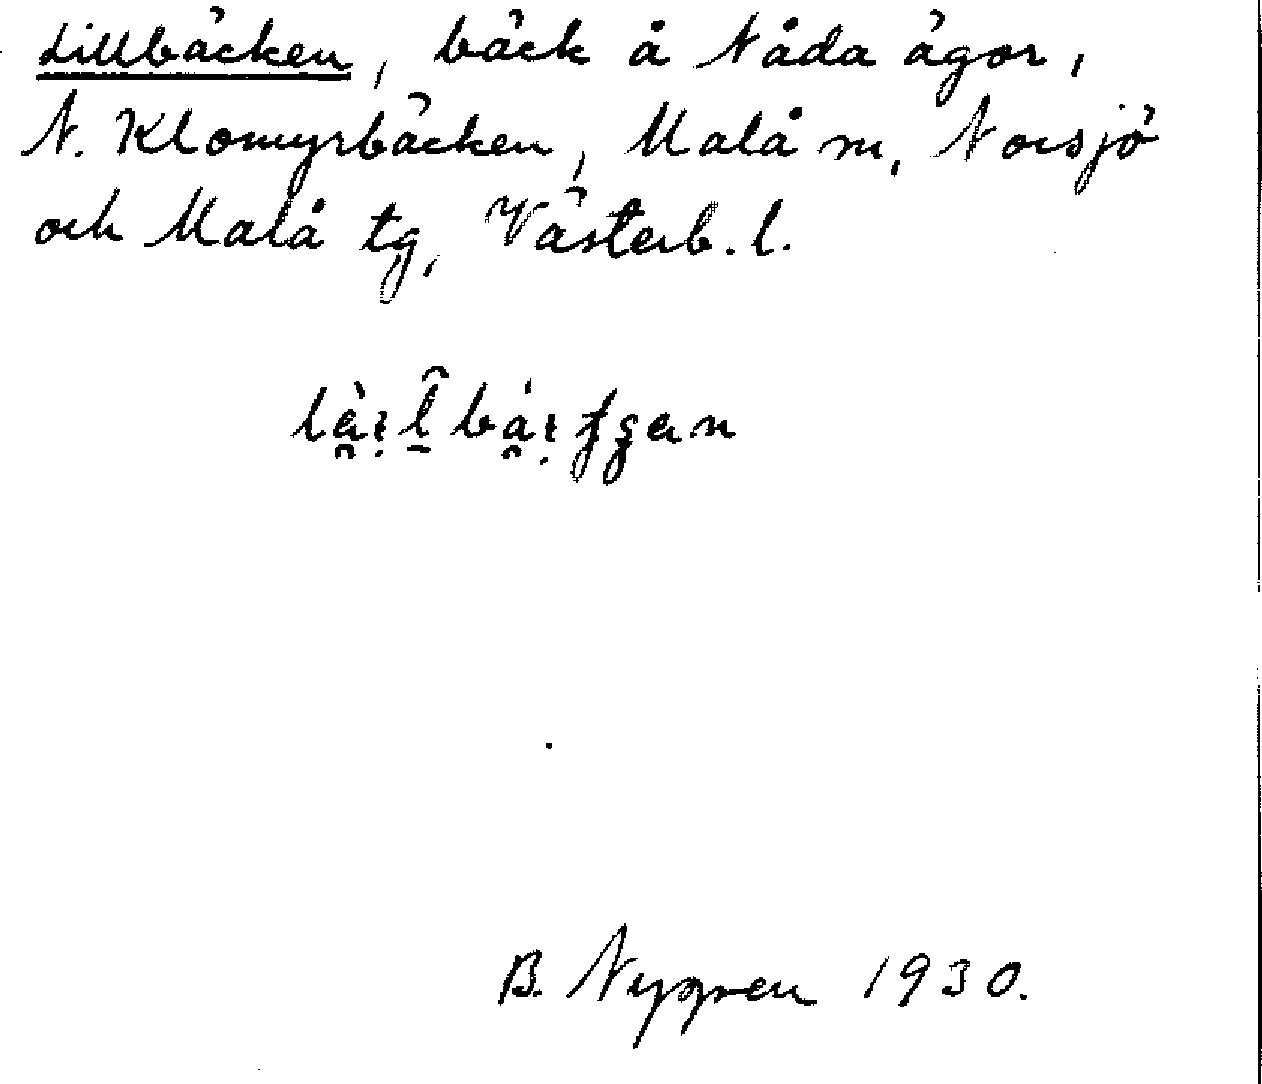 Lillbäcken, bäck å Nåda ägor,
N. Klomyrbäcken, Malå sn, Norsjö
och Malå tg, Västerb. l.
B. Nygren 1930.